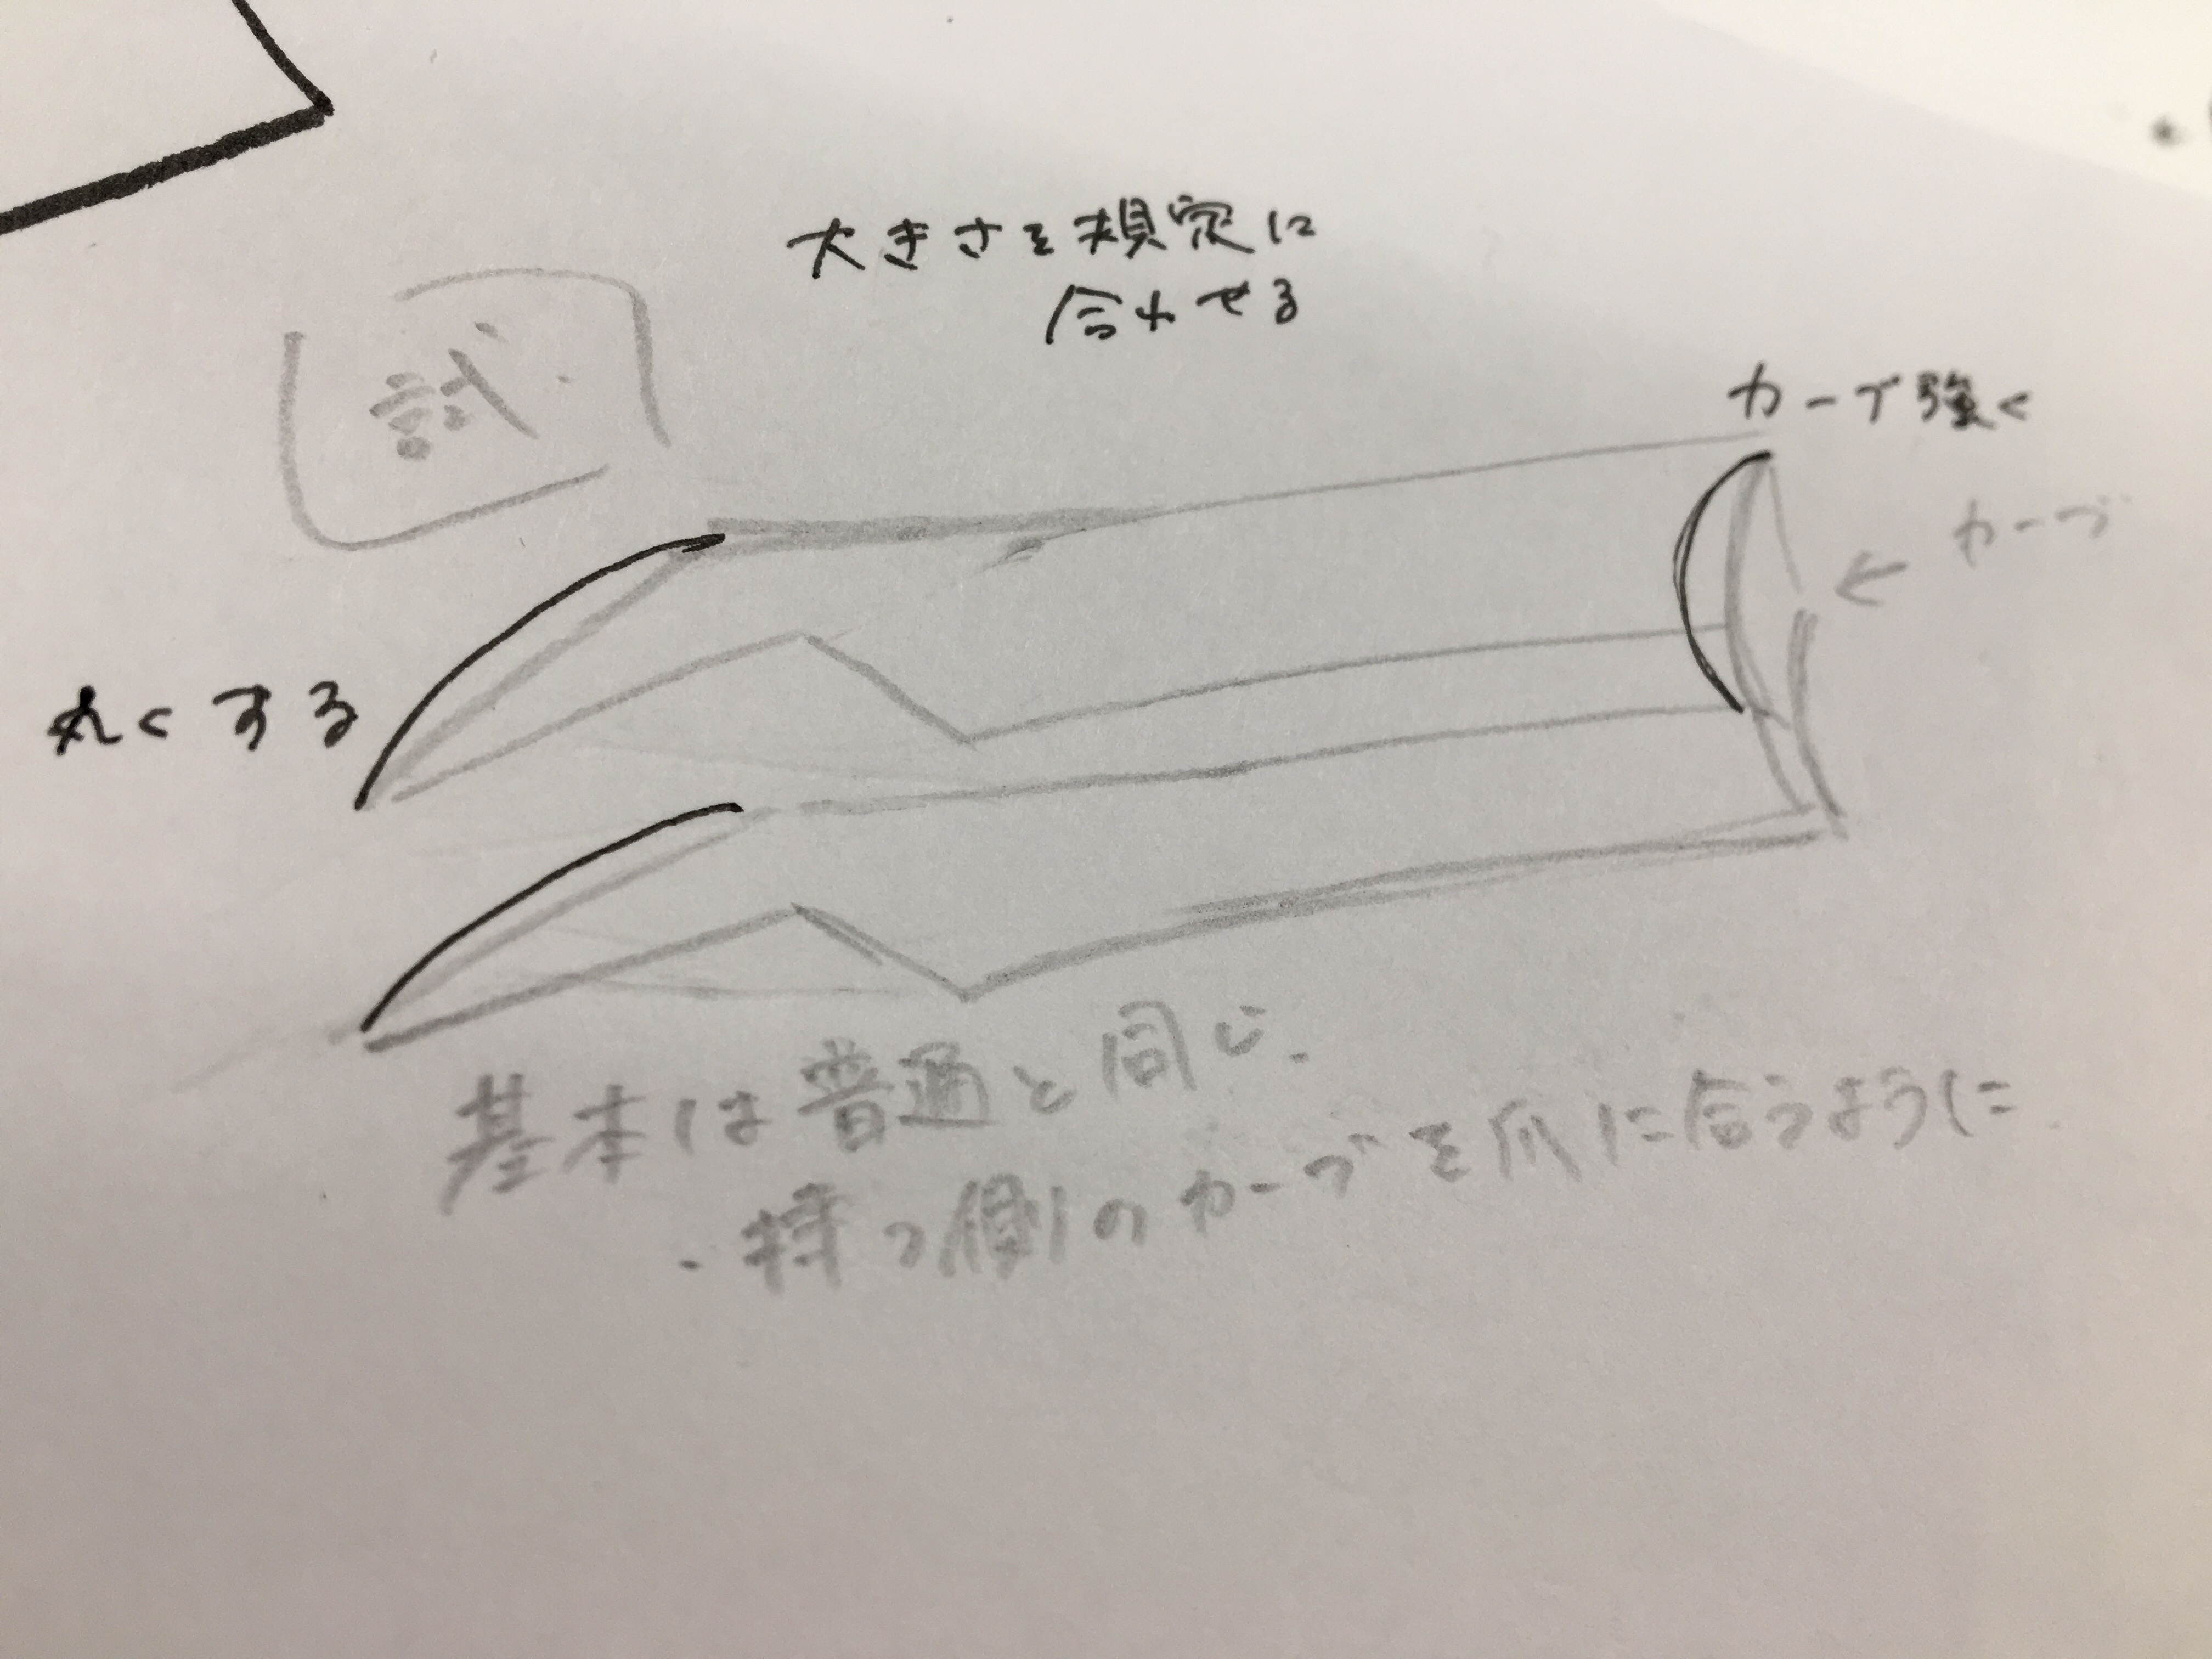 大きさを規定に
合わせる
試
カーブ強く
← カーブ
丸くする
基本は普通と同じ.
・持つ側のカーブを爪に合うように